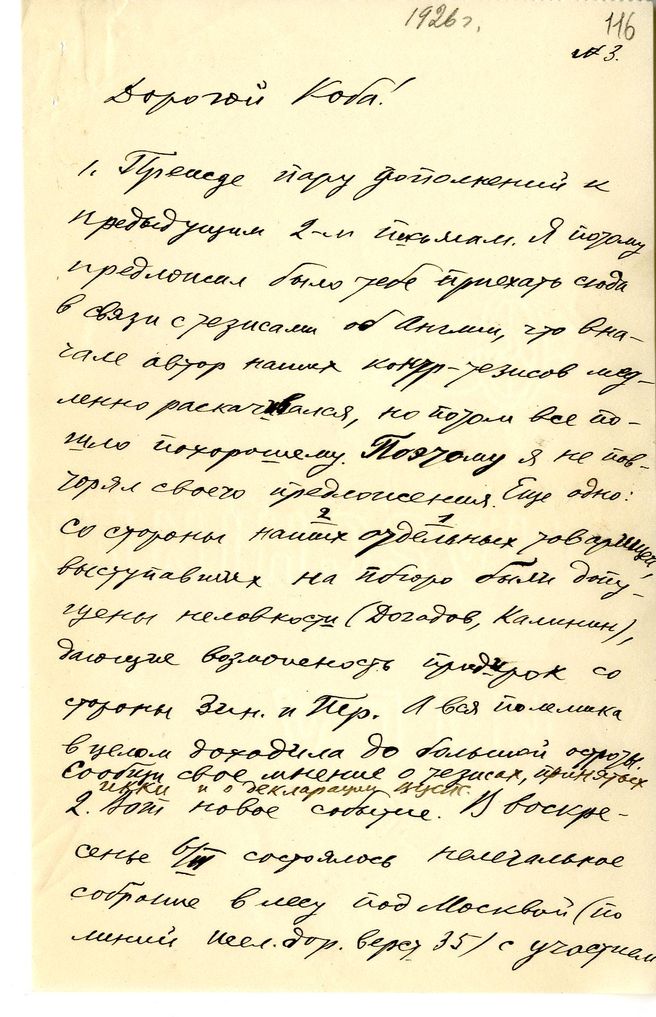 1926 г.
116
№ 3.
Дорогой Коба!
1. Прежде пару дополнений к
предыдущим 2-м письмам. Я потому
предложил было тебе приехать сюда
в связи с тезисами об Англии, что вна-
чале автор наших контр-тезисов мед-
ленно раскачивался, но потом все по-
шло похорошему. Поэтому я не пов-
торял своего предложения. Еще одно:
2 1
со стороны наших отдельных товарищей,
выступавших на пбюро были допу-
щены неловкости (Догадов, Калинин),
дающие возможность придирок со
стороны Зин. и Тр. А вся полемика
в целом доходила до большой остроты.
Сообщи свое мнение о тезисах, принятых
ИККИ и о декларации ВЦСПС.
2. Вот новое событие. В воскре-
сенье 6/VI состоялось нелегальное
собрание в лесу под Москвой (по
линии жел. дор. верст 35) с участием